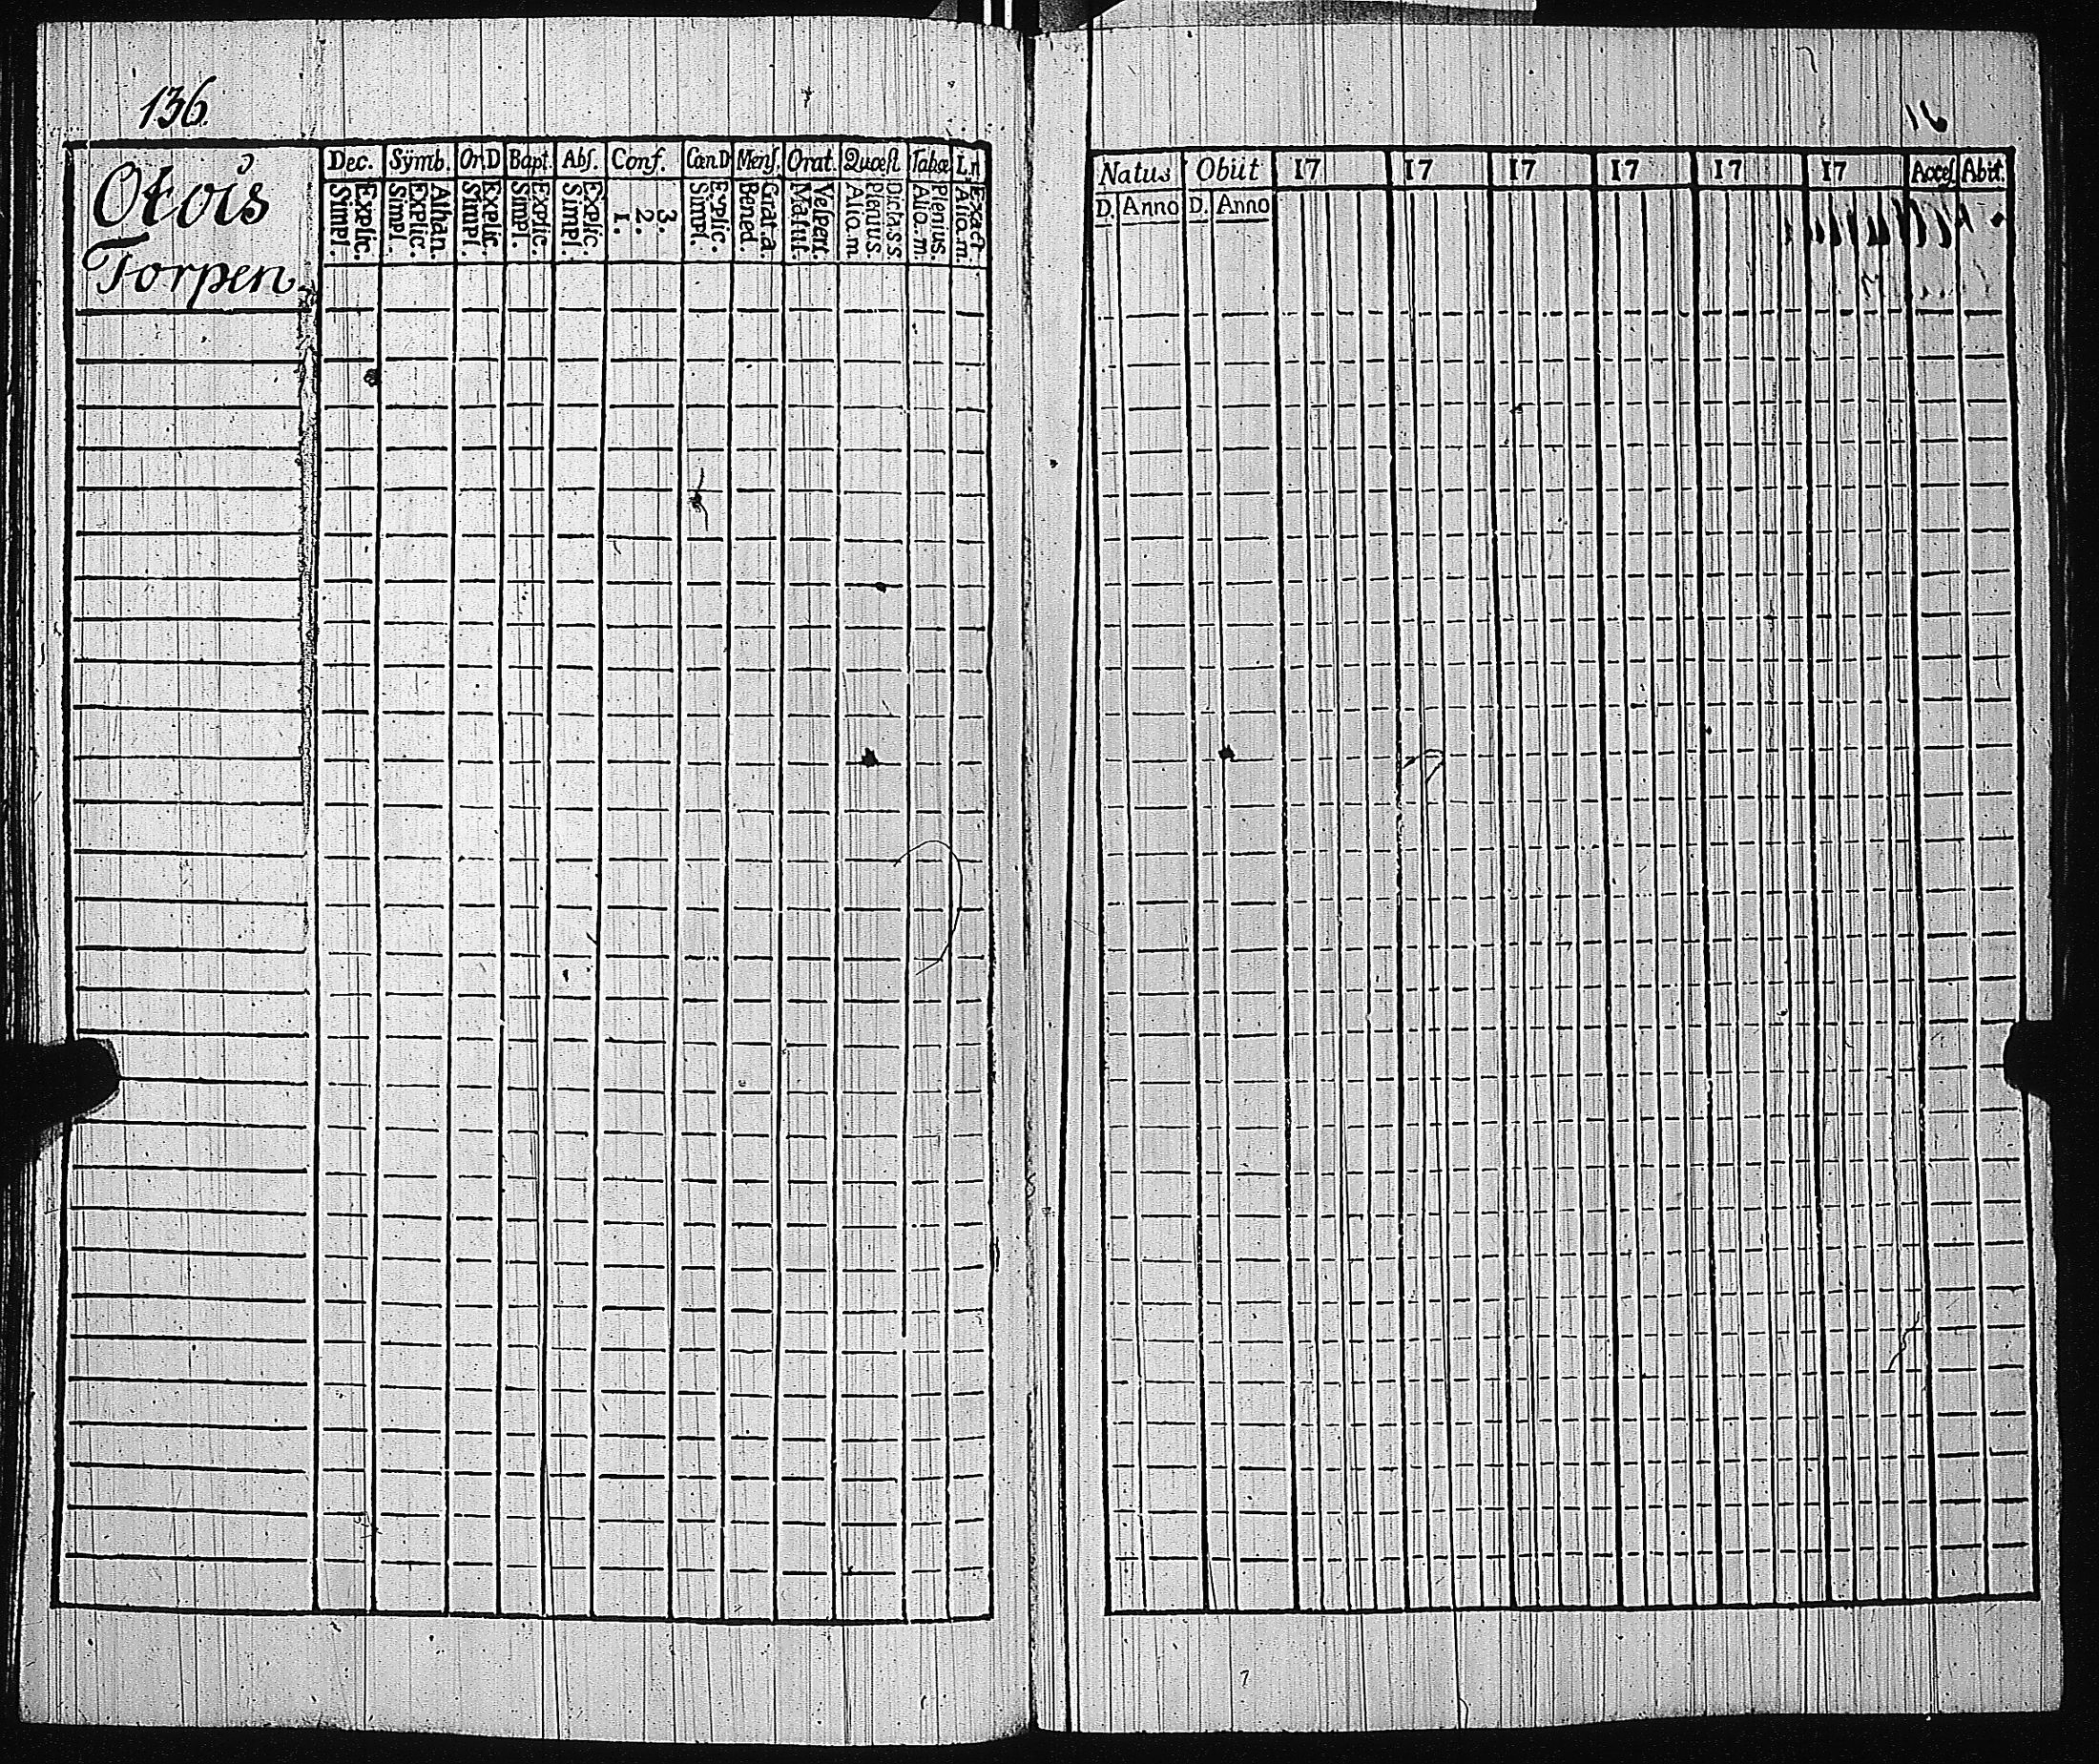 136.
Otois
Torpen.
Dec. Sÿmb. Or.D Bapt. Abſ. Conf. Cœn.D Menſ. Orat. Quæſt Tabæ L.n
Explic. Simpl.
Athan. Explic. Simpl.
Explic. Simpl.
Explic. Simpl.
Explic. Simpl.
3. 2. 1.
Explic. Simpl.
Grat.a. Bened.
Veſpert. Matut.
Dicta.S.S. Plenius. Alio.m
Plenius. Alio.m.
Exact. Alio.m.
Natus Obiit 17 17 17 17 17 17 Acceſ. Abit.
D. Anno D. Anno